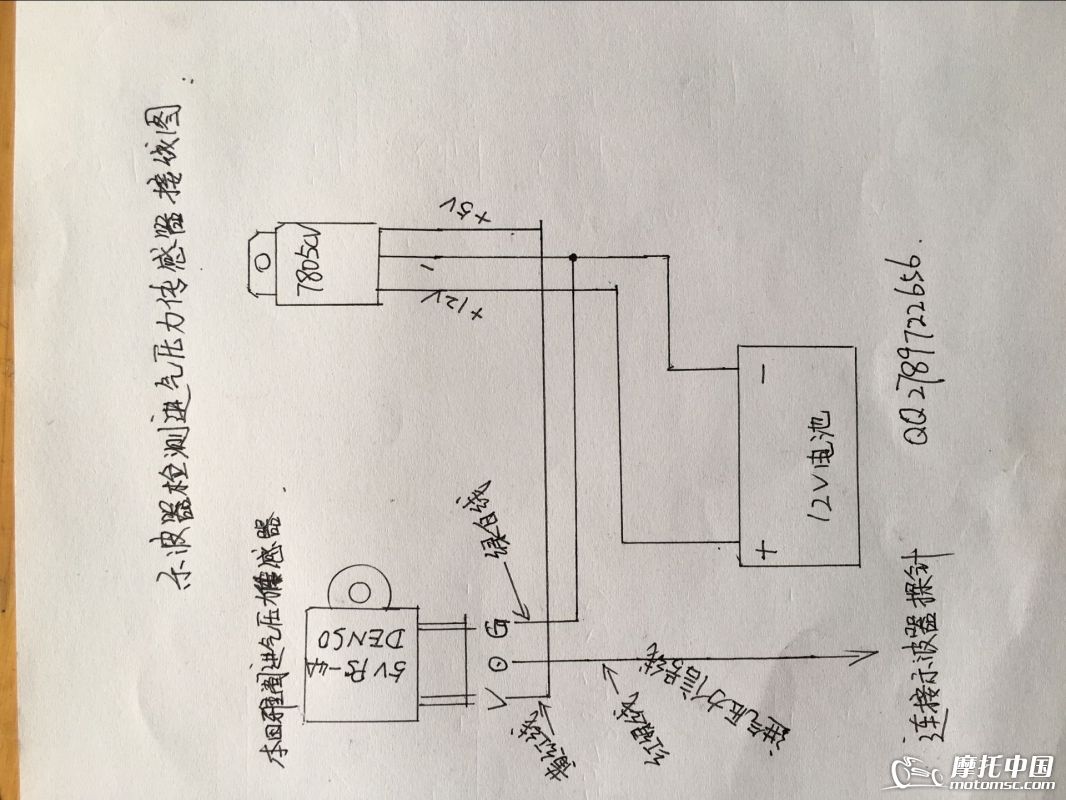 示波器检测进气压力传感器接线图:
本田雅阁进气压力传感器.
DENSO
5V PS-4
V
O
G
黄红线
绿白线
进气压力信号线
连接示波器探针
7805CV
+12V
-
+5V
12V电池
+
-
QQ2789722656.
摩托中国
motomsc.com